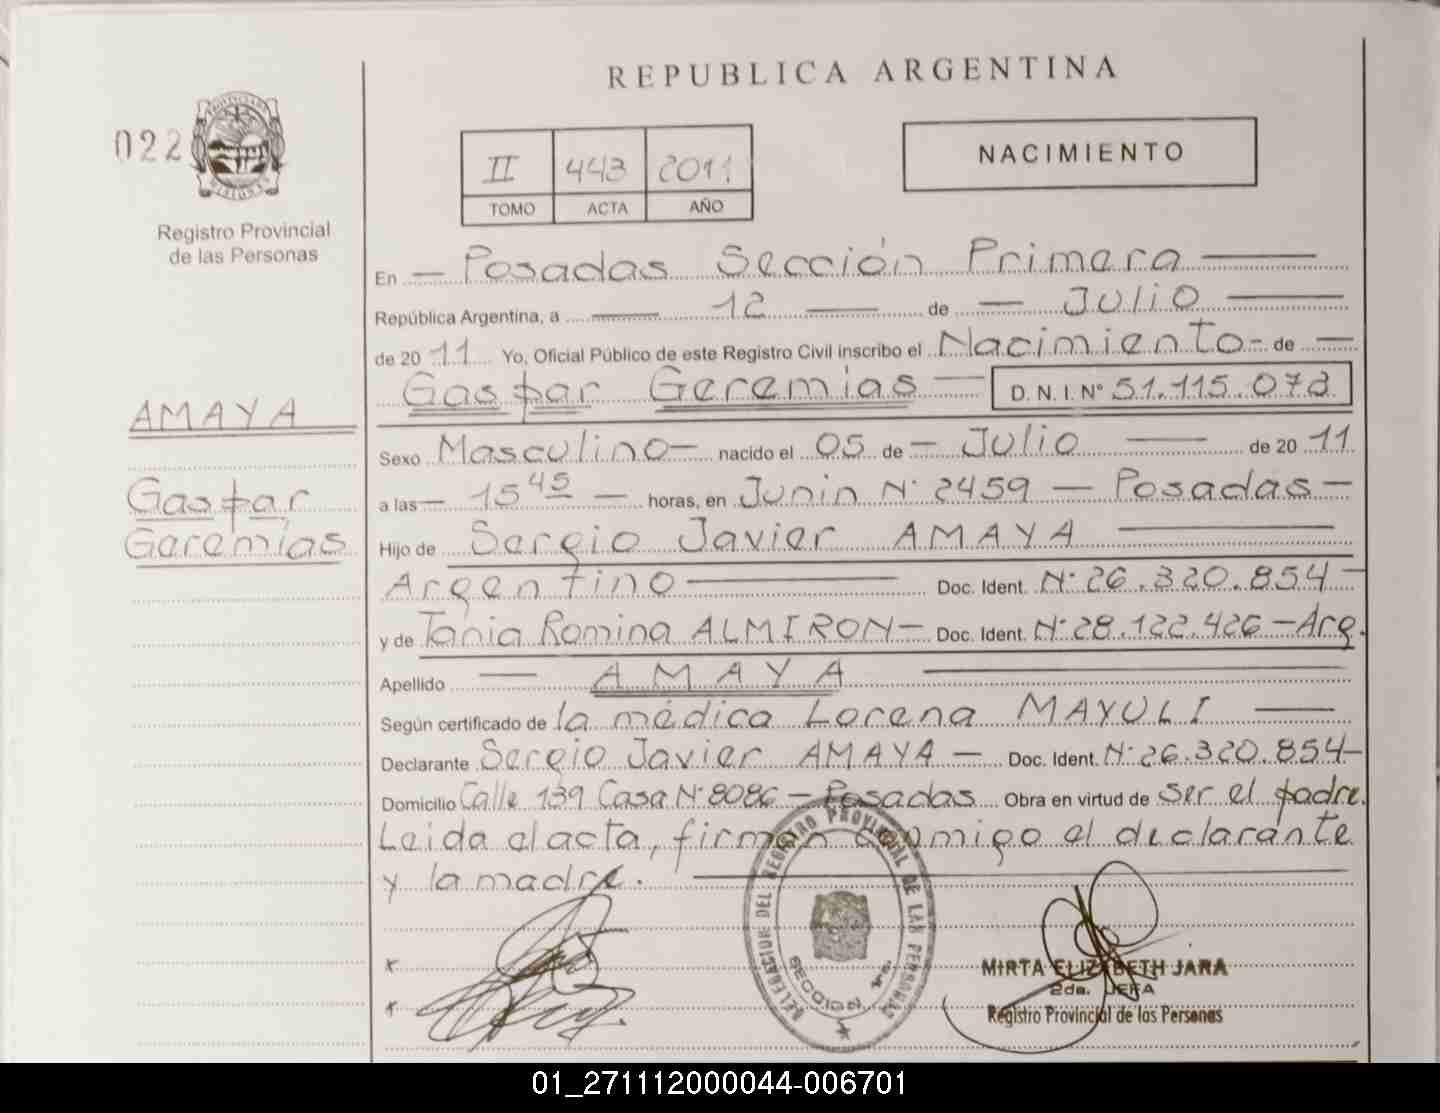 REPUBLICA ARGENTINA
022
Registro Provincial
de las Personas
II 443 2011
TOMO ACTA AÑO
NACIMIENTO
En Posadas Sección Primera
República Argentina, a 12 de Julio
de 2011 Yo, Oficial Público de este Registro Civil inscribo el Nacimiento de
Gaspar Geremias D.N.I.Nº 51.115.073
AMAYA
Gaspar
Geremías
Sexo Masculino nacido el 05 de Julio de 2011
a las 15 45 horas, en Junin Nº 2459 - Posadas
Hijo de Sergio Javier AMAYA
Argentino Doc. Ident. Nº 26.320.854
y de Tania Romina ALMIRON Doc. Ident. Nº 28.122.426 - Arg.
Apellido AMAYA
Según certificado de la médica Lorena MAYULI
Declarante Sergio Javier AMAYA Doc. Ident. Nº 26.320.854
Domicilio Calle 139 Casa Nº 8086 - Posadas Obra en virtud de ser el padre.
Leida el acta, firman conmigo el declarante
y la madre.
DELEGACION DEL REGISTRO PROVINCIAL DE LAS PERSONAS
SECCION 1ra.
MIRTA ELIZABETH JARA
2da. JEFA
Registro Provincial de las Personas
01_271112000044-006701